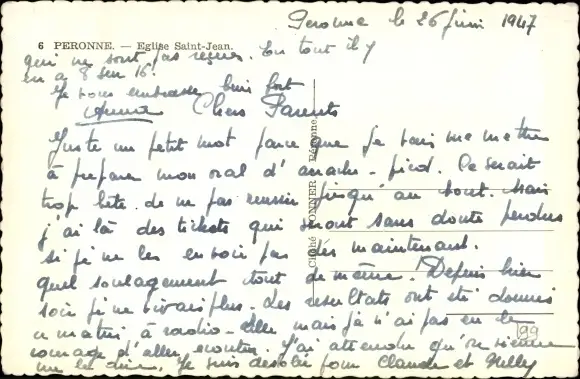 Peronne le 26 juin 1947
6 PERONNE. — Eglise Saint-Jean.
En tout il y
qui ne sont pas reçues.
en a 8 sur 16.
Je vous embrasse bien fort
Chers Parents
Juste un petit mot parce que je vais me mettre
à préparer mon oral d'arrache-pied. Ce serait
trop bête de ne pas réussir jusqu'au bout. Mais
j'ai là des tickets qui seront sans doute perdus
si je ne les envoie pas dès maintenant.
quel soulagement tout de même. Depuis hier
soir je ne vivais plus. Les résultats ont été donnés
ce matin à radio-Lille mais je n'ai pas eu le
courage d'aller écouter. J'ai attendu qu'on vienne
me le dire. Je suis désolée pour Claude et Nelly
Cliché Péronne.
99